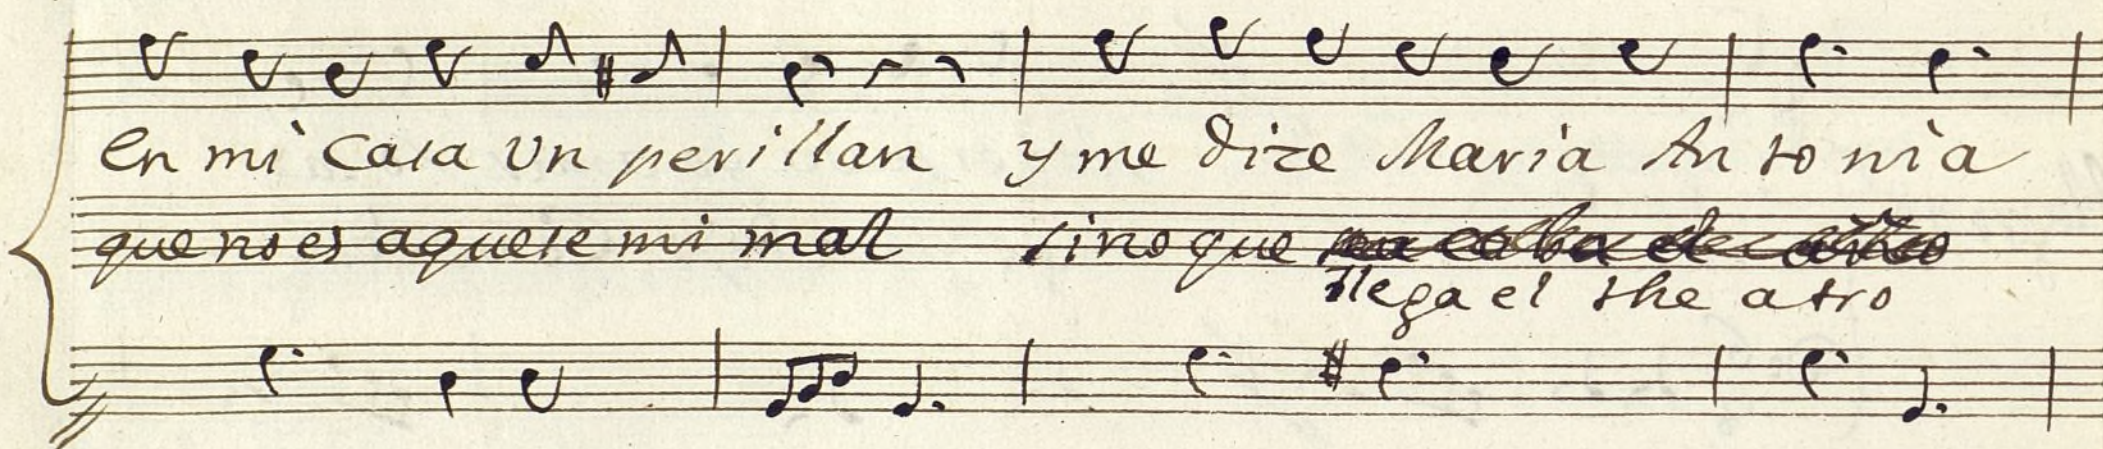 en mi Casa Un perillan y me dize Maria An to nia
que no es aquese mi mal sino que
llega el the a tro